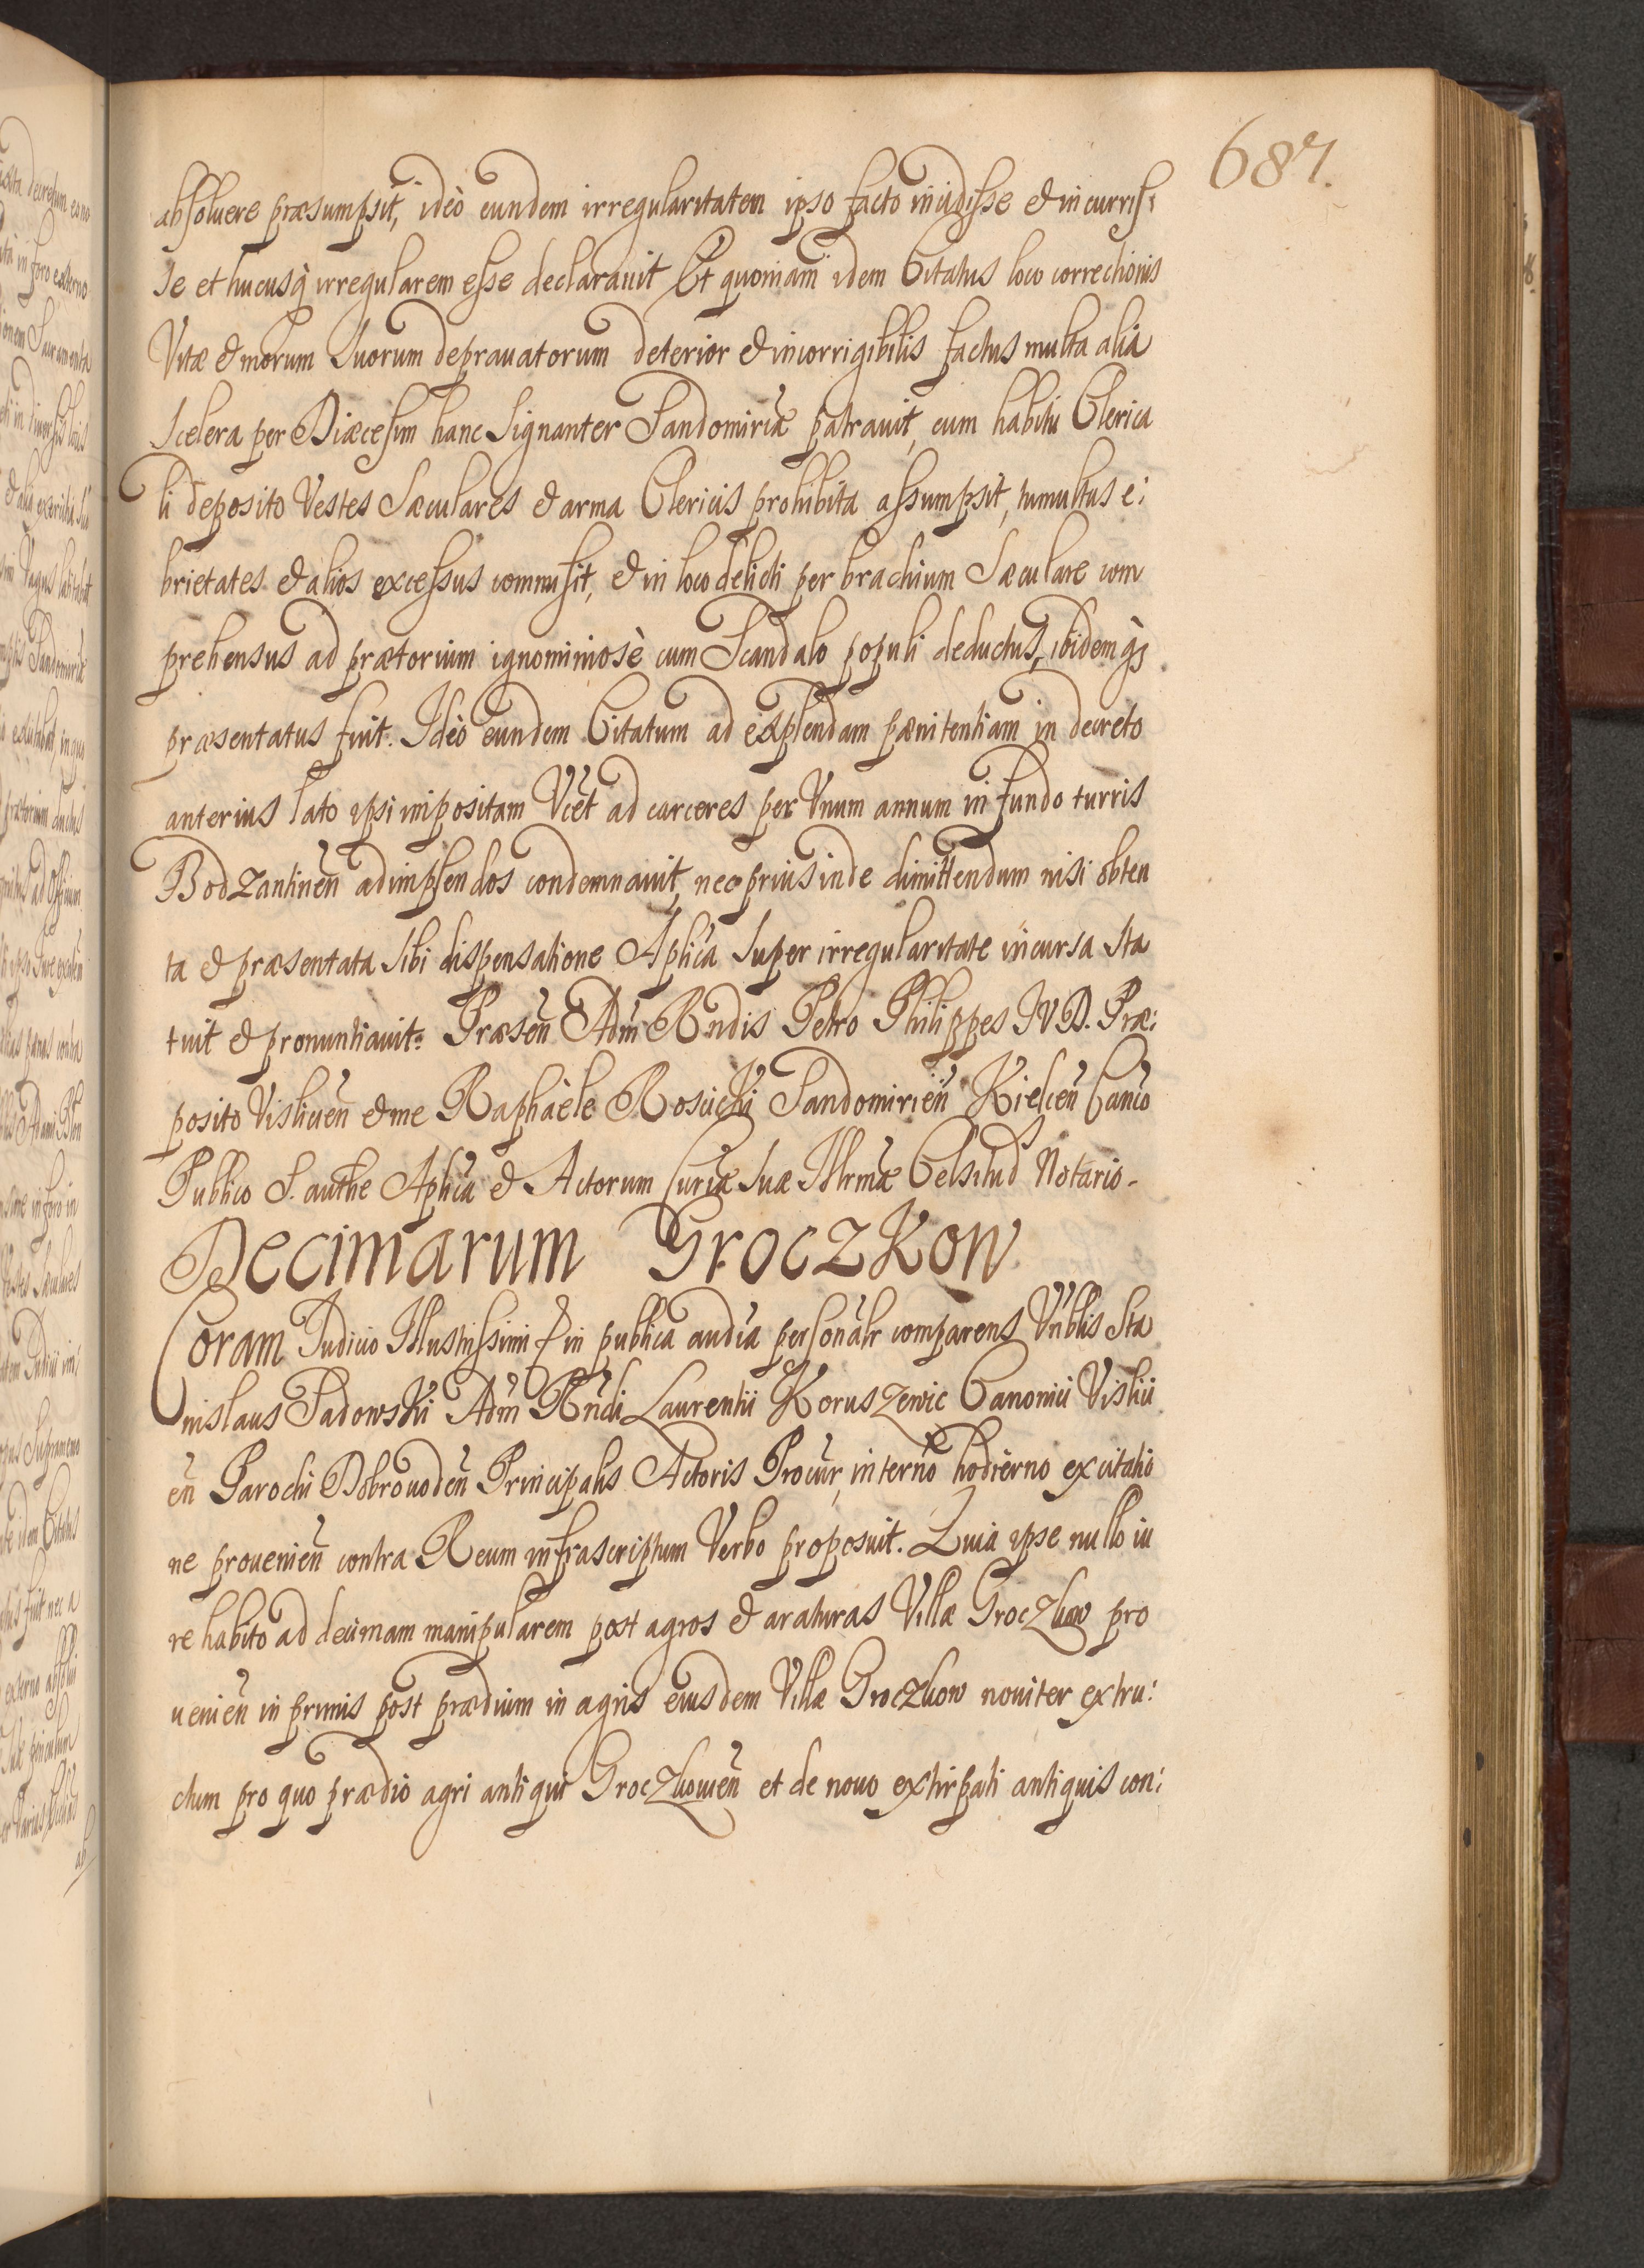 687.
absoluere præsumpsit, ideò eundem irregularitatem ipso facto incidisse et incurris:
se et hucusq̀ irregularem esse declarauit Et quoniam idem Citatus loco correctionis
Vitæ et morum suorum deprauatorum deterior et incorrigibilis factus multa alia
scelera per Diæcesim hanc signanter Sandomiriæ patrauit, cum habitu Clerica
li deposito Vestes Sæculares et arma Clericis prohibita assumpsit, tumultus e:
brietates et alios excessus commisit, et in loco delicti per brachium Sæculare com
prehensus ad prætorium ignominiosè cum Scandalo populi deductus, ibidemq̀3
præsentatus fuit. Ideò eundem Citatum ad explendam pænitentiam in decreto
anterius lato ipsi impositam Vcet ad carceres per Vnum annum in fundo turris
Bodzantineñ adimplendos condemnauit, nec prius inde dimittendum nisi obten
ta et præsentata sibi dispensatione Aplica super irregularitate incursa sta
tuit et pronuntiauit. Præseñ Adm̃ Rndis Petro Philippes IVD. Præ:
posito Vislicieñ et me Raphaële Rosicki Sandomirieñ Kielceñ Canco
Publico S. authe Aplica et Actorum Curiæ suæ Illrmæ Celsitud Notario.
Decimarum Groczkow
Coram Iudicio Illustrissimi in publica audia personalr comparens Vnblis Sta
nislaus Sadowski Adm̃ Rndi Laurentii Koruszewic Canonici Vislici
eñ Parochi Dobrouodeñ Principalis Actoris Procur, in termo hodierno ex citatio
ne prouenieñ contra Reum infrascriptum Verbo proposuit. Quia ipse nullo iu
re habito ad decimam manipularem post agros et araturas Villæ Groczkow pro
uenieñ in primis post prædium in agris eiusdem Villæ Groczkow nouiter extru:
ctum pro quo prædio agri antiqui Groczkouieñ et de nouo extirpati antiquis con: